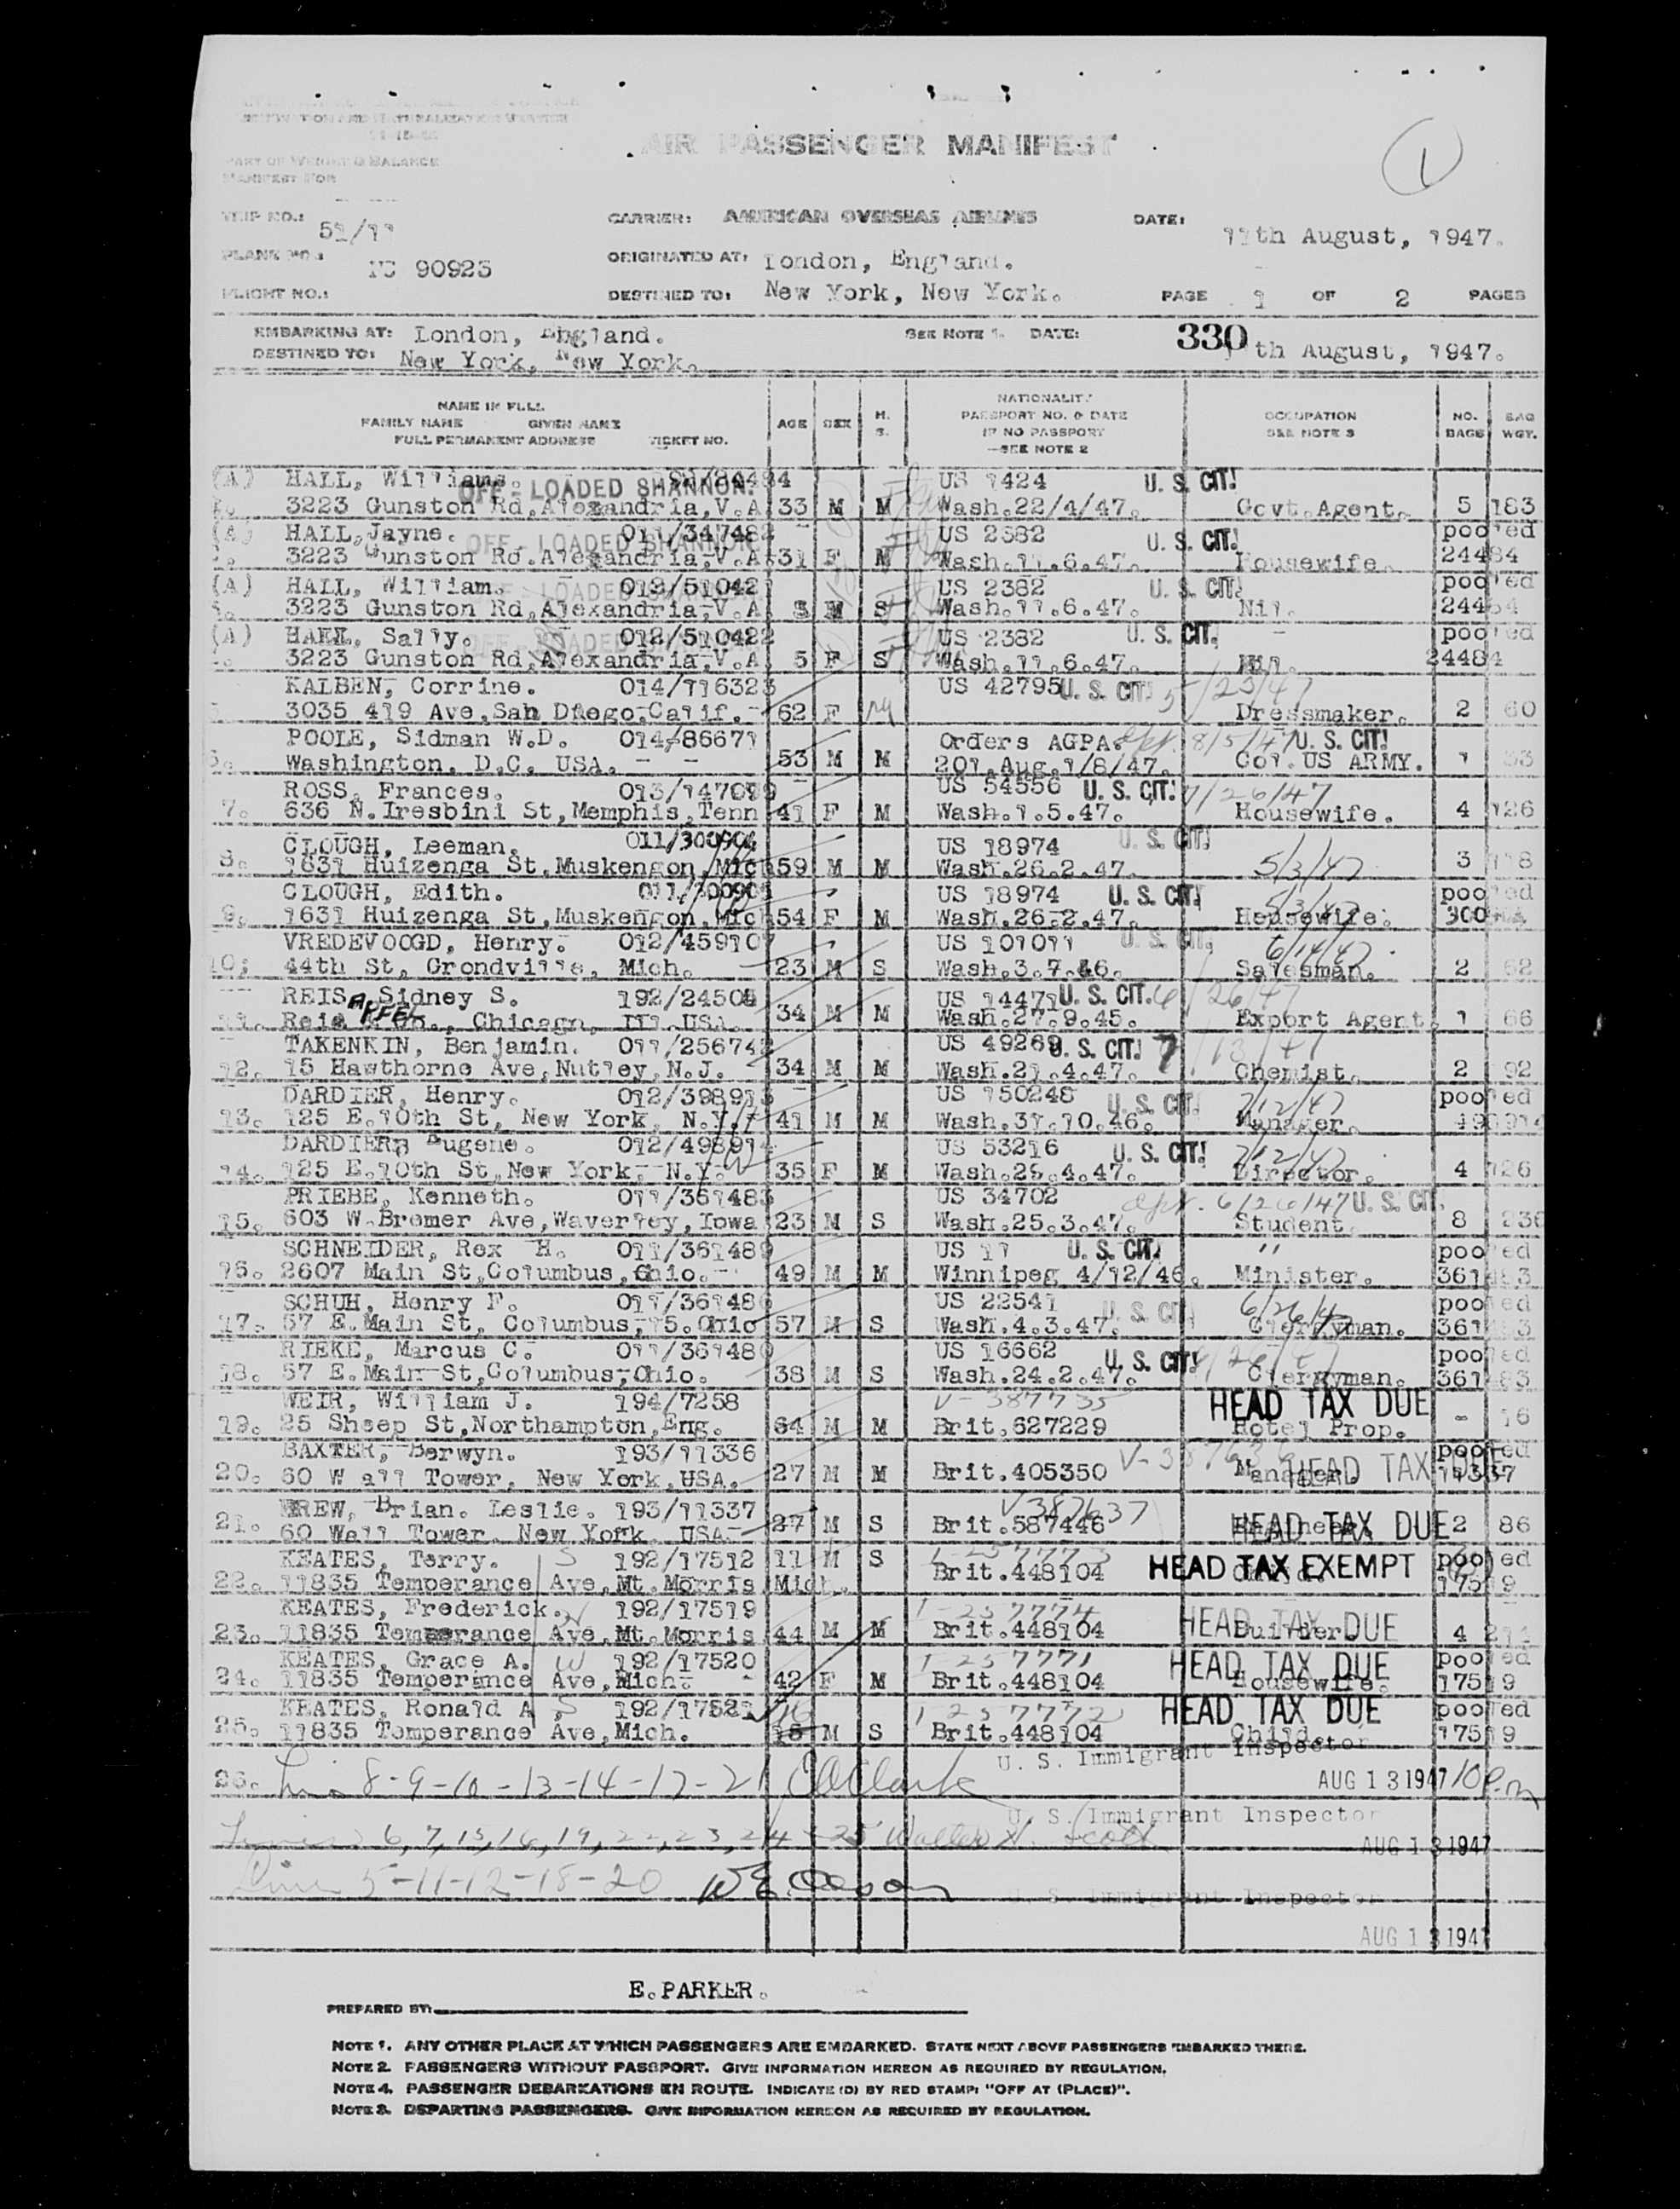 AIR PASSENGER MANIFEST
1
PART OF WEIGHT & BALANCE
MANIFEST FOR
TRIP NO.: CARRIER: AMERICAN OVERSEAS AIRLINES DATE: 11th August, 1947.
PLANE NO.: NC 90925 ORIGINATED AT: London, England.
FLIGHT NO.: DESTINED TO: New York, New York. PAGE 1 OF 2 PAGES
EMBARKING AT: London, England. SEE NOTE 1. DATE: 330 th August, 1947.
DESTINED TO: New York, New York.
NAME IN FULL
FAMILY NAME GIVEN NAME
FULL PERMANENT ADDRESS TICKET NO. AGE SEX M. S. NATIONALITY PASSPORT NO. & DATE IF NO PASSPORT —SEE NOTE 2 OCCUPATION SEE NOTE 3 NO. BAGS BAG WGT.
(A) HALL, Williams. OFF - LOADED SHANNON. US 1424 U. S. CIT.
3223 Gunston Rd, Alexandria, V.A 33 M M Wash.22/4/47. Govt. Agent. 5 183
(A) HALL, Jayne. 011/347482 OFF - LOADED SHANNON US 2382 U. S. CIT. pooled
3223 Gunston Rd. Alexandria, V.A 31 F M Wash.11.6.47. Housewife. 24484
(A) HALL, William. 012/510421 US 2382 U. S. CIT. pooled
3223 Gunston Rd, Alexandria, V.A M S Wash.11.6.47. Nil. 24484
(A) HALL, Sally. 012/510422 US 2382 U. S. CIT. pooled
3223 Gunston Rd, Alexandria, V.A 5 F S Wash.11.6.47. Nil. 24484
KALBEN, Corrine. 014/116323 US 42795 U. S. CIT. 5/23/47
3035 419 Ave, San Diego, Calif. 62 F Dressmaker. 2 60
POOLE, Sidman W.D. 014/86671 Orders AGPA. 8/5/47 U. S. CIT.
Washington, D.C. USA. 53 M M 201.Aug.1/8/47. Col. US ARMY. 1 33
ROSS, Frances. 013/147099 US 54556 U. S. CIT. 7/26/47
7. 636 N. Iresbini St, Memphis, Tenn 41 F M Wash.1.5.47. Housewife. 4 126
CLOUGH, Leeman. 011/300904 US 18974 U. S. CIT.
8. 1631 Huizenga St, Muskengon, Mich 59 M M Wash.26.2.47. 5/3/47 3 118
CLOUGH, Edith. 011/300905 US 18974 U. S. CIT. 5/3/47 pooled
9. 1631 Huizenga St, Muskengon, Mich 54 F M Wash.26.2.47. Housewife.
VREDEVOOGD, Henry. 012/459107 US 101011 U. S. CIT. 6/14/47
10. 44th St, Grondville, Mich. 23 M S Wash.3.7.46. Salesman. 2 62
REIS, Sidney S. 192/24504 US 14471 U. S. CIT. 6/26/47
11. Chicago, Ill. USA. 34 M M Wash.27.9.45. Export Agent. 1 66
TAKENKIN, Benjamin. 011/256742 US 49269 U. S. CIT. 7/13/47
12. 15 Hawthorne Ave, Nutley, N.J. 34 M M Wash.21.4.47. Chemist. 2 92
DARDIER, Henry. 012/398913 US 150248 U. S. CIT. 7/12/47 pooled
13. 125 E.10th St, New York. N.Y. 41 M M Wash.31.10.46. Manager.
DARDIER, Eugene. 012/498914 US 53216 U. S. CIT. 7/12/47
14. 125 E.10th St, New York. N.Y. 35 F M Wash.29.4.47. Director. 4 126
PRIEBE, Kenneth. 011/361483 US 34702 6/26/47 U. S. CIT.
15. 603 W. Bremer Ave, Waverley, Iowa 23 M S Wash.25.3.47. Student. 8 236
SCHNEIDER, Rex H. 011/361489 US 11 U. S. CIT. " pooled
15. 2607 Main St, Columbus, Ohio. 49 M M Winnipeg 4/12/46. Minister. 361483
SCHUH, Henry F. 011/361486 US 22541 U. S. CIT. 6/26/47 pooled
17. 57 E. Main St, Columbus, 15. Ohio 57 M S Wash.4.3.47. Clerryman. 361483
RIEKE, Marcus C. 011/361480 US 16662 U. S. CIT. pooled
18. 57 E. Main St, Columbus, Ohio. 38 M S Wash.24.2.47. Clerryman. 361483
WEIR, William J. 194/7258 V-387735 HEAD TAX DUE
19. 25 Sheep St, Northampton, Eng. 64 M M Brit.627229 Hotel Prop. - 16
BAXTER, Berwyn. 193/11336 HEAD TAX DUE pooled
20. 60 Wall Tower, New York, USA. 27 M M Brit.405350 Manager. 11337
DREW, Brian. Leslie. 193/11337 V387637
21. 60 Wall Tower, New York, USA 27 M S Brit.587446 HEAD TAX DUE 2 86
KEATES, Terry. S 192/17512 11 M S HEAD TAX EXEMPT pooled
22. 11835 Temperance Ave, Mt. Morris Mich. Brit.448104 17519
KEATES, Frederick. 192/17519 1-257774 HEAD TAX DUE
23. 11835 Temperance Ave, Mt. Morris 44 M M Brit.448104 Builder 4 211
KEATES, Grace A. W 192/17520 1-257771 HEAD TAX DUE pooled
24. 11835 Temperance Ave, Mich. 42 F M Brit.448104 Housewife. 17519
KEATES, Ronald A S 192/17521 16 1-257772 HEAD TAX DUE pooled
25. 11835 Temperance Ave, Mich. M S Brit.448104 Child. 17519
U. S. Immigrant Inspector
26. 8-9-10-13-14-17-21 AUG 13 1947 10 P.m
U. S. Immigrant Inspector
Lines 6, 7, 15, 16, 19, 22, 23, 24 - 25 Walter Scott AUG 13 1947
Lines 5-11-12-18-20 U. S. Immigrant Inspector
AUG 13 1947
E. PARKER.
PREPARED BY:
NOTE 1. ANY OTHER PLACE AT WHICH PASSENGERS ARE EMBARKED. STATE NEXT ABOVE PASSENGERS EMBARKED THERE.
NOTE 2. PASSENGERS WITHOUT PASSPORT. GIVE INFORMATION HEREON AS REQUIRED BY REGULATION.
NOTE 4. PASSENGER DEBARKATIONS EN ROUTE. INDICATE (D) BY RED STAMP: "OFF AT (PLACE)".
NOTE 3. DEPARTING PASSENGERS. GIVE INFORMATION HEREON AS REQUIRED BY REGULATION.